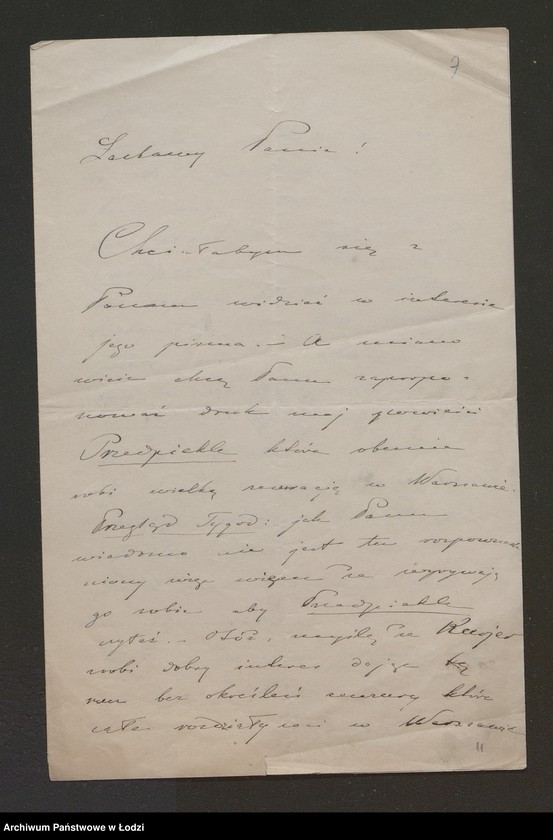 7
Łaskawy Panie!
Chciałabym się z
Panem widzieć w interesie
jego pisma. – A miano
wicie chcę Panu zapropo-
nować druk mej powieści
Przedpiekle która obecnie
robi wielką sensację w Warszawie.
Przegląd Tygod: jak Panu
wiadomo nie jest tu rozpowszech
niony więc wiem że wyrywają
go sobie aby Przedpiekle
czytać. – Otóż, myślę że Kurjer
zrobi dobry interes dając
bez określeń cenzury które
całe rozdziały mi w Warszawie
11
Archiwum Państwowe w Łodzi